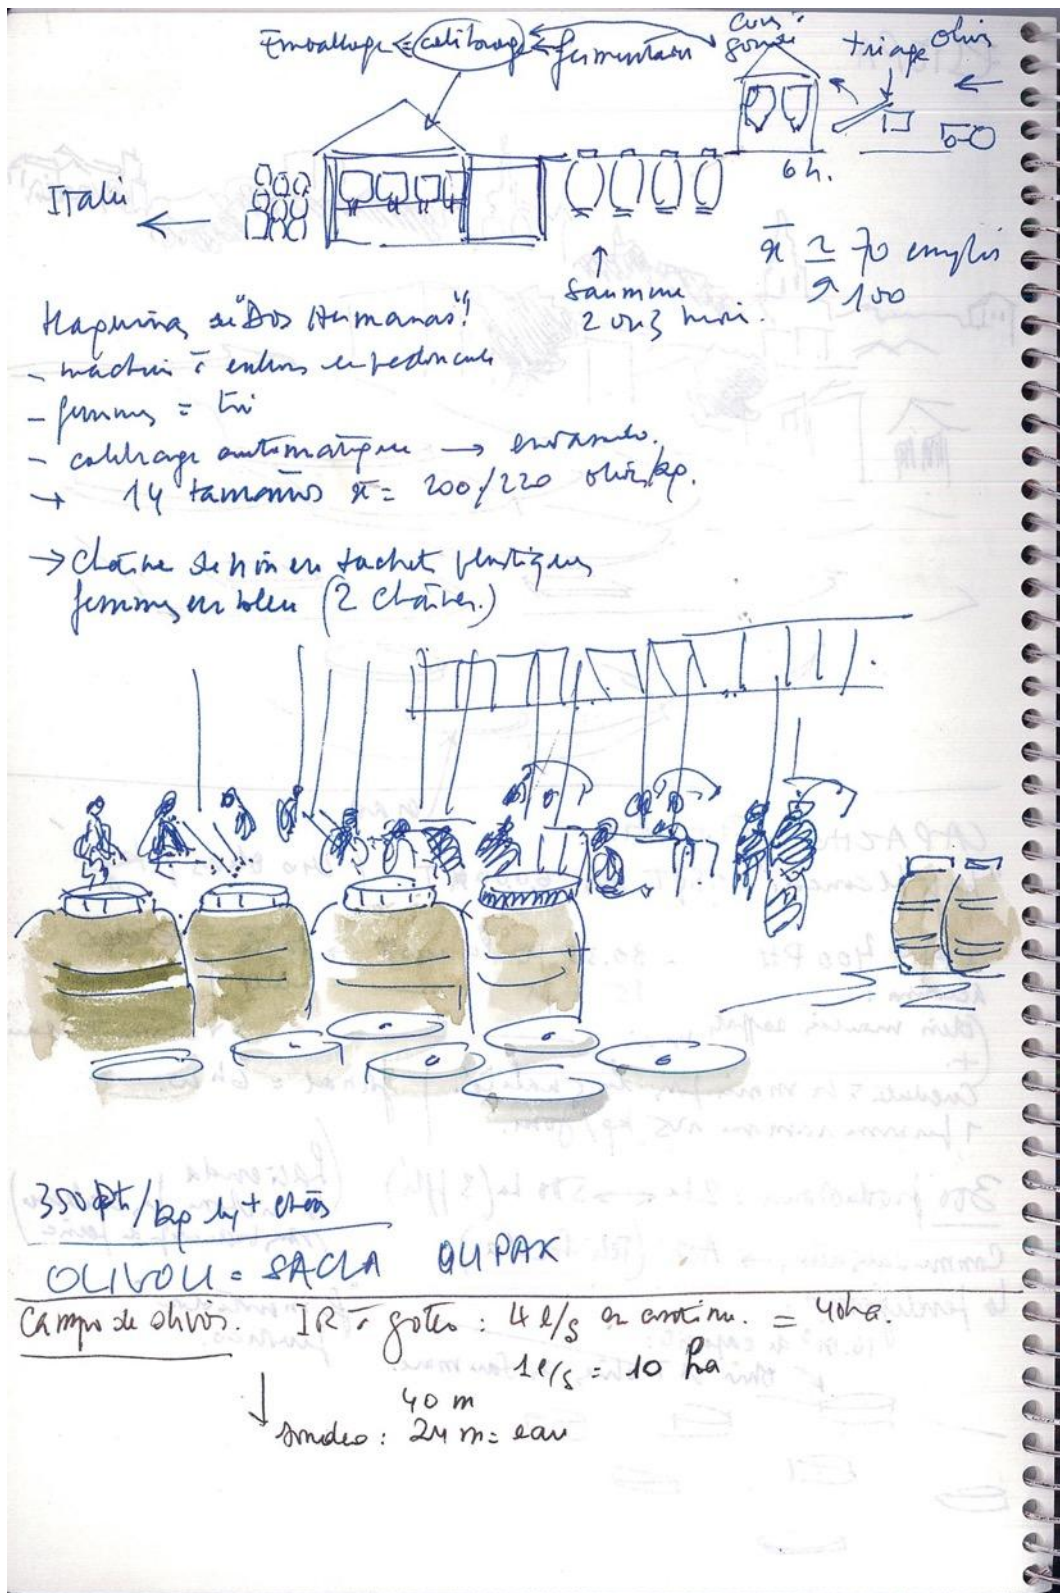 Emballage ⇐ calibrage ← fermentation
cuve à soude
triage
olives
6 h.
Italie
x̄ ≃ 70 emplois
↗ 100
saumure
2 ou 3 mois.
Maquinas de "Dos Hermanas"!
- machine à enlever le pédoncule
- femmes = tri
- calibrage automatique → envasado.
→ 14 tamaños x̄ = 200/220 olives/kg.
→ Chaîne de mise en sachets plastiques
femmes en bleu (2 chaînes.)
350 pt/kg
OLIVOLI = SACLA OLIPAK
Campo de olivos. IR à goteo : 4 l/s en continu. = 40 ha.
1 l/s = 10 ha
40 m
↓ sondeo : 24 m = eau